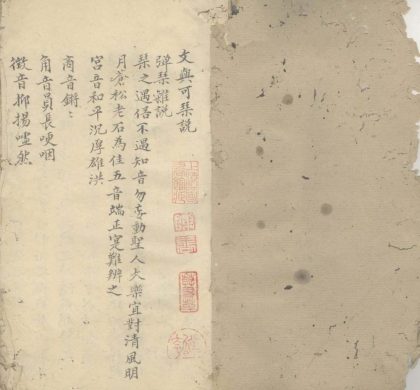 文與可琹說
彈琹雜說
琹之遇俗不遇知音勿妄動聖人大樂宜對清風明
月蒼松老石為佳五音端正寔難辨之
宮音和平沉厚雄洪
商音鏘〻
角音員長哽咽
徵音抑揚嘘然